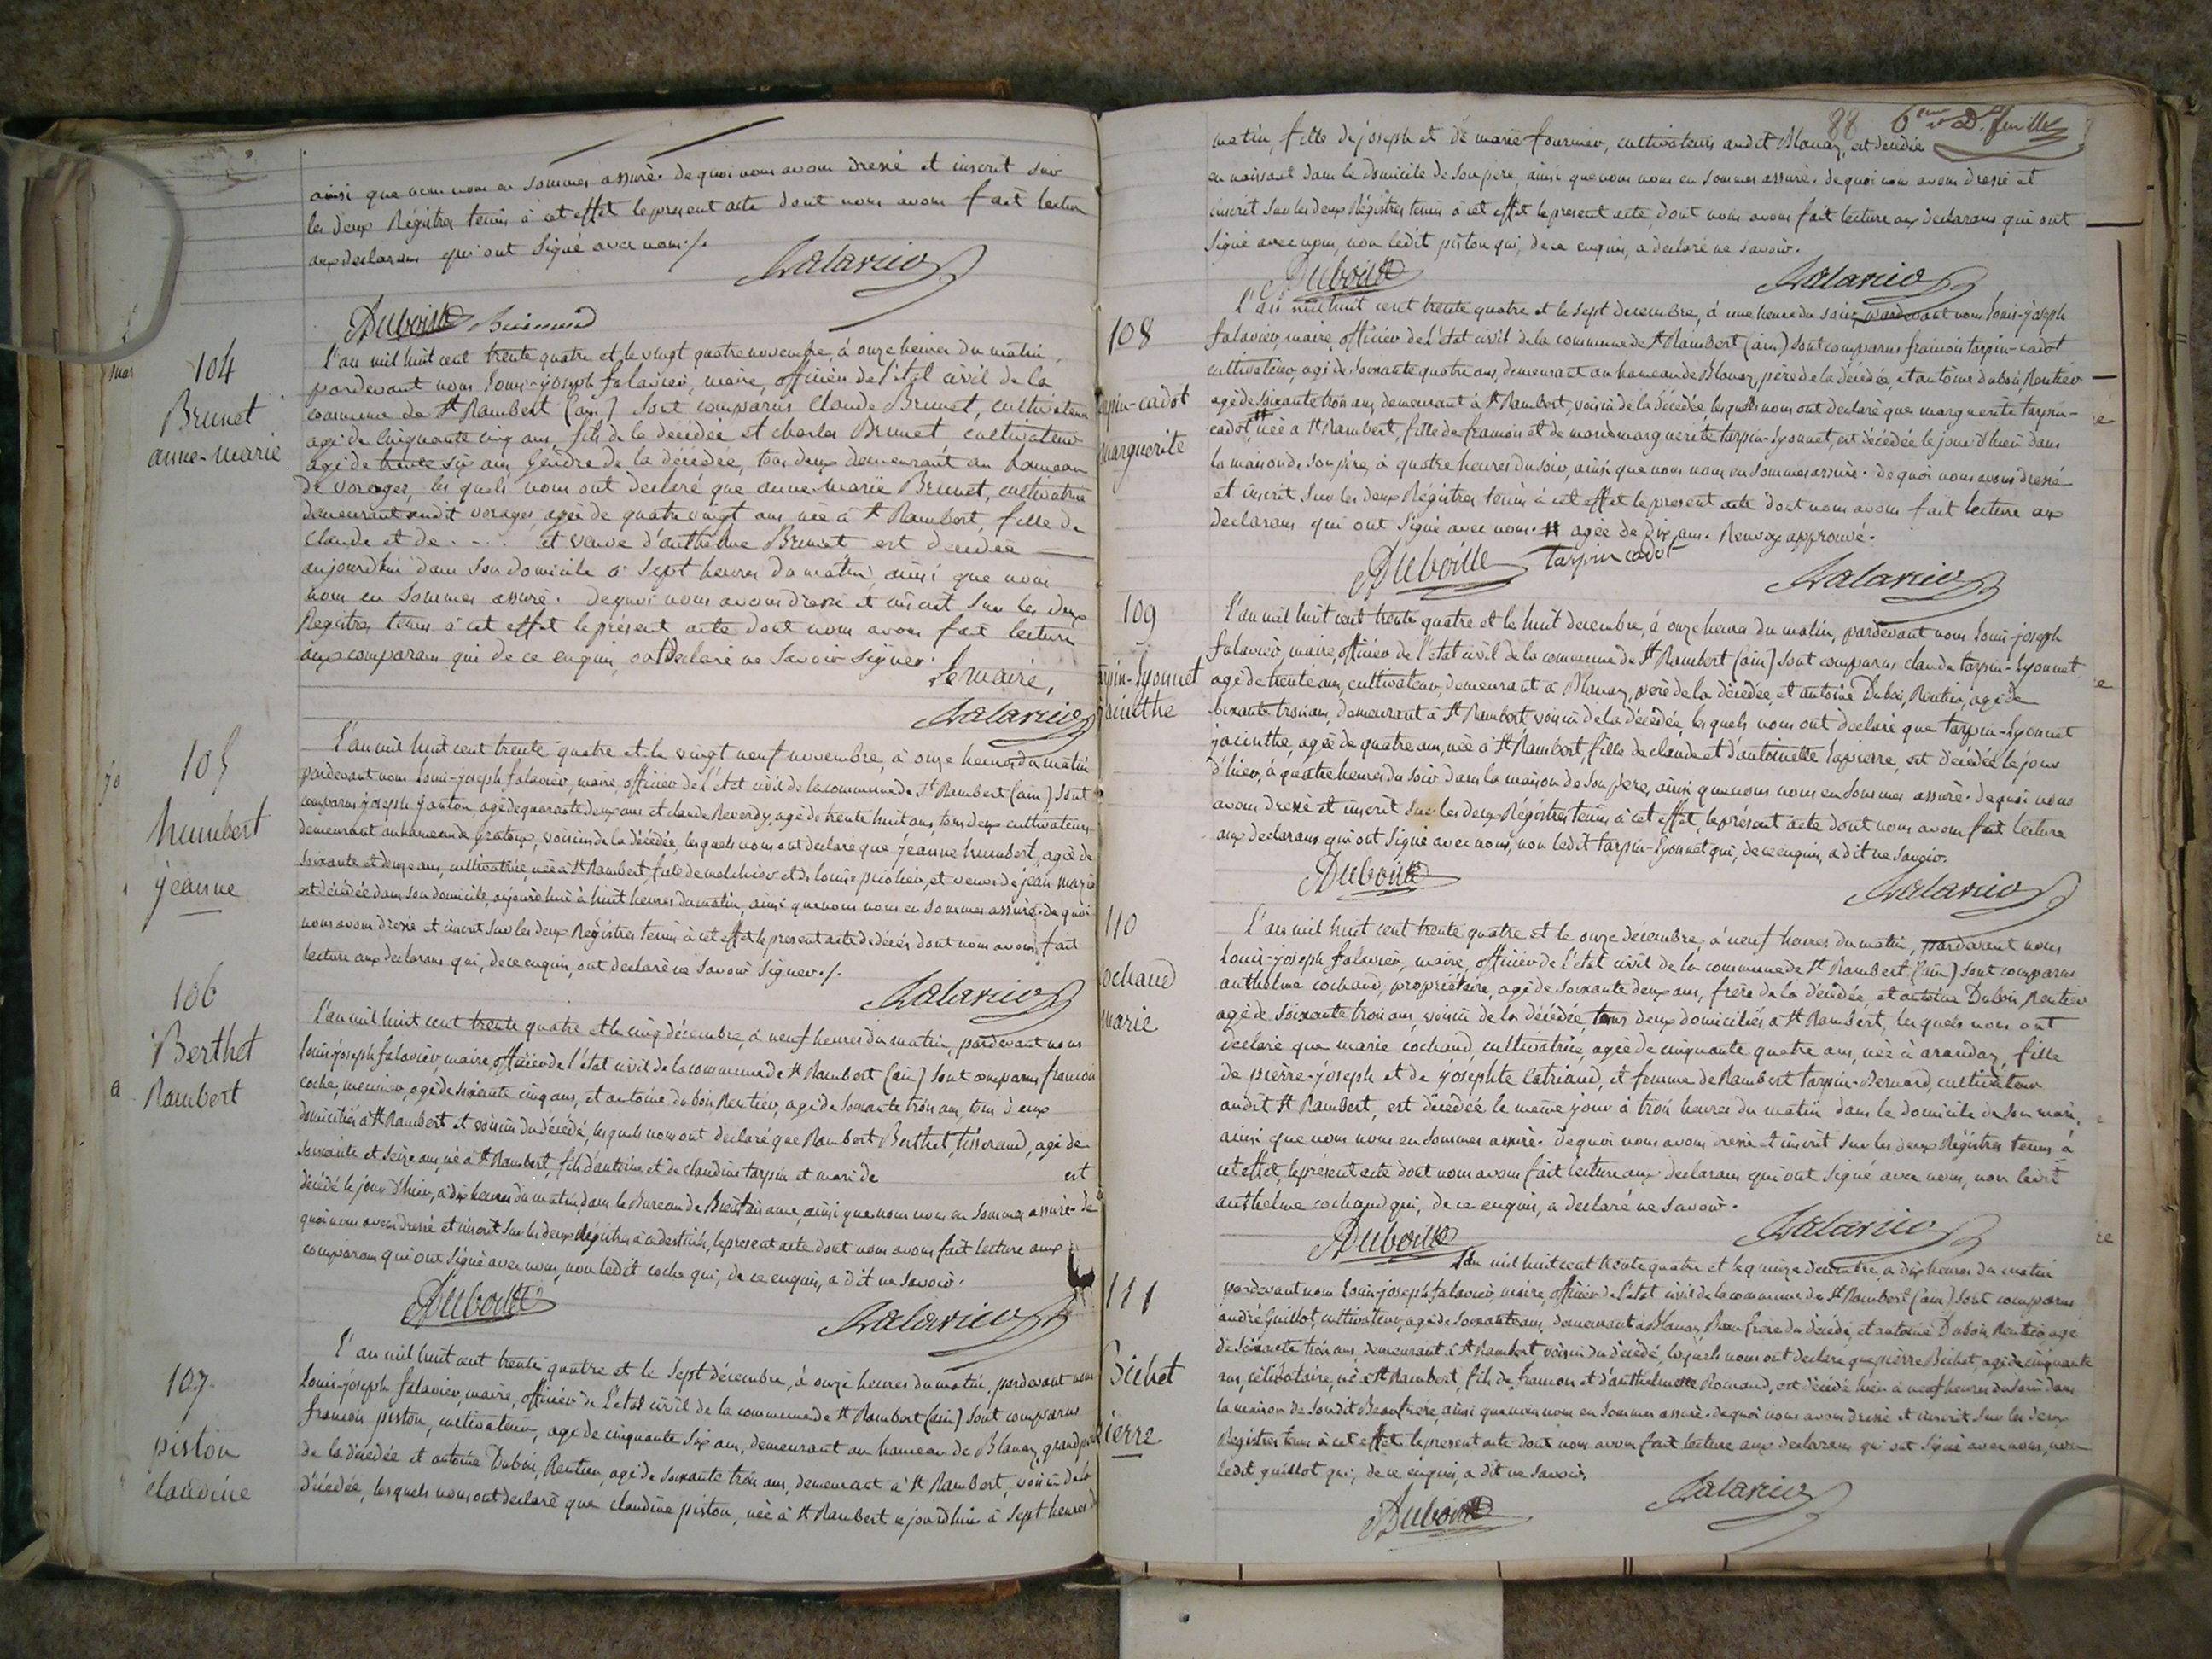 ainsi que nous nous en sommes assuré. de quoi nous avons dressé et inscrit sur
les deux Régistres tenus à cet effet le present acte dont nous avons fait lecture
aux declarans qui ont signé avec nous ./.
falavier
Duboiss
104
Brunet
anne-marie
L'an mil huit cent trente quatre et le vingt quatre novembre, à onze heures du matin,
pardevant nous Louis-joseph falavier, maire, officier de l'état civil de la
commune de St Rambert (ain) sont comparus Claude Brunet, cultivateur
agé de Cinquante cinq ans, fils de la décédée et charles Brunet cultivateur
agé de trente six ans, Gendre de la décédée, tous deux demeurant au hameau
de vorages, les quels nous ont declaré que anne-Marie Brunet, cultivatrice
demeurant audit vorages, agée de quatre vingt ans, née à St Rambert, fille de
Claude et de . - .. et veuve d'anthelme Brunet est decedée
aujourdhui dans son domicile à sept heures du matin, ainsi que nous
nous en sommes assuré. de quoi nous avons dressé et inscrit sur les deux
Régistres tenus à cet effet le présent acte dont nous avons fait lecture
aux comparans qui de ce enquis ont declaré ne savoir signer.
Le maire,
falavier
105
humbert
jeanne
L'an mil huit cent trente quatre et le vingt neuf novembre, à onze heures du matin
pardevant nous Louis-joseph falavier, maire, officier de l'état civil de la commune de St Rambert (ain) sont
comparus joseph janton, agé de quarante deux ans et claude Reverdy, agé de trente huit ans, tous deux cultivateurs
demeurant au hameau de Gratoux, voisins de la décédée, les quels nous ont declaré que jeanne humbert, agée de
soixante et douze ans, cultivatrice, née à St Rambert, fille de melchior et de louise, et veuve de jean
est décédée dans son domicile, aujourdhui à huit heures du matin, ainsi que nous nous en sommes assuré. de quoi
nous avons dressé et inscrit sur les deux Régistres tenus à cet effet le present acte de décès dont nous avons fait
lecture aux declarans qui, de ce enquis, ont declaré ne savoir signer ./.
falavier
106
Berthet
Rambert
L'an mil huit cent trente quatre et le cinq décembre, à neuf heures du matin, pardevant nous
Louis-joseph falavier, maire, officier de l'état civil de la commune de St Rambert (ain) sont comparus francois
coche, meunier, agé de soixante cinq ans, et antoine dubois Rentier, agé de soixante trois ans, tous deux
domiciliés à St Rambert et voisins du décédé, les quels nous ont declaré que Rambert Berthet, tisserand, agé de
soixante et seize ans, né à St Rambert, fils d'antoine et de claudine tarpin et mari de est
décédé le jour d'hier, à dix heures du matin, dans le Bureau de Bienfaisance, ainsi que nous nous en sommes assuré. de
quoi nous avons dressé et inscrit sur les deux Régistres à ce destinés, le present acte dont nous avons fait lecture aux
comparans qui ont signé avec nous, non ledit coche qui, de ce enquis, a dit ne savoir.
Duboiss
falavier
107
piston
claudine
L'an mil huit cent trente quatre et le sept décembre, à onze heures du matin, pardevant nous
Louis-joseph falavier, maire, officier de l'état civil de la commune de St Rambert (ain) sont comparus
francois piston, cultivateur, agé de cinquante six ans, demeurant au hameau de Blanaz, grand père
de la décédée et antoine Dubois, Rentier, agé de soixante trois ans, demeurant à St Rambert, voisin de la
décédée, les quels nous ont declaré que claudine piston, née à St Rambert ajourdhui à sept heures
88
matin, fille de joseph et de marie fournier, cultivateurs audit Blanaz, est décédée
en naissant dans le domicile de son père, ainsi que nous nous en sommes assuré. de quoi nous avons dressé et
inscrit sur les deux Régistres tenus à cet effet le present acte, dont nous avons fait lecture aux declarans qui ont
signé avec nous, non ledit piston qui, de ce enquis, a declaré ne savoir.
Duboiss
falavier
108
tarpin-cadot
marguerite
L'an mil huit cent trente quatre et le sept decembre, à une heure du soir, pardevant nous Louis-joseph
falavier, maire, officier de l'état civil de la commune de St Rambert (ain) sont comparus francois tarpin-cadot
cultivateur, agé de soixante quatre ans, demeurant au hameau de Blanaz, père de la décédée, et antoine dubois Rentier
agé de soixante trois ans, demeurant à St Rambert, voisin de la décédée, les quels nous ont declaré que marguerite tarpin-
cadot, # née à St Rambert, fille de francois et de marguerite tarpin-Lyonnet, est décédée le jour d'hier dans
la maison de son père, à quatre heures du soir, ainsi que nous nous en sommes assuré. de quoi nous avons dressé
et inscrit sur les deux Régistres tenus à cet effet le present acte dont nous avons fait lecture aux
declarans qui ont signé avec nous. # agée de dix ans. Renvoy approuvé.
Duboiss
tarpin cadot
falavier
109
tarpin-Lyonnet
jacinthe
L'an mil huit cent trente quatre et le huit decembre, à onze heures du matin, pardevant nous Louis-joseph
falavier, maire, officier de l'état civil de la commune de St Rambert (ain) sont comparus claude tarpin-Lyonnet
agé de trente ans, cultivateur, demeurant à Blanaz, père de la décédée, et antoine Dubois, Rentier, agé de
soixante trois ans, demeurant à St Rambert, voisin de la décédée, les quels nous ont declaré que tarpin-Lyonnet
jacinthe, agée de quatre ans, née à St Rambert, fille de claude et d'antoinette Lapierre, est décédée le jour
d'hier, à quatre heures du soir dans la maison de son père, ainsi que nous nous en sommes assuré. de quoi nous
avons dressé et inscrit sur les deux Régistres tenus à cet effet, le présent acte dont nous avons fait lecture
aux declarans qui ont signé avec nous, non ledit tarpin-Lyonnet qui, de ce enquis, a dit ne savoir.
Duboiss
falavier
110
cochand
marie
L'an mil huit cent trente quatre et le onze décembre, à neuf heures du matin, pardevant nous
Louis-joseph falavier, maire, officier de l'état civil de la commune de St Rambert (ain) sont comparus
anthelme cochand, propriétaire, agé de soixante deux ans, frère de la décédée, et antoine Dubois Rentier
agé de soixante trois ans, voisin de la décédée tous deux domiciliés à St Rambert, les quels nous ont
declaré que marie cochand, cultivatrice, agée de cinquante quatre ans, née à arandaz, fille
de pierre-joseph et de josephte, et femme de Rambert tarpin-Bernard, cultivateur
audit St Rambert, est décédée le même jour à trois heures du matin dans le domicile de son mari,
ainsi que nous nous en sommes assuré. de quoi nous avons dressé et inscrit sur les deux Régistres tenus à
cet effet, le présent acte dont nous avons fait lecture aux declarans qui ont signé avec nous, non ledit
anthelme cochand qui, de ce enquis, a declaré ne savoir.
Duboiss
falavier
111
Bichet
pierre
L'an mil huit cent trente quatre et le quinze decembre, à dix heures du matin
pardevant nous Louis-joseph falavier, maire, officier de l'état civil de la commune de St Rambert (ain) sont comparus
andré Guillot, cultivateur, agé de soixante ans, demeurant à Blanaz, Beaufrère du décédé, et antoine Dubois, Rentier, agé
de soixante trois ans, demeurant à St Rambert voisin du décédé, les quels nous ont declaré que pierre Bichet, agé de cinquante
ans, célibataire, né à St Rambert, fils de francois et d'anthelmette Romand, est décédé hier à neuf heures du soir dans
la maison de son dit Beaufrère, ainsi que nous nous en sommes assuré. de quoi nous avons dressé et inscrit sur les deux
Régistres tenus à cet effet le present acte dont nous avons fait lecture aux declarans qui ont signé avec nous, non
ledit guillot qui, de ce enquis, a dit ne savoir.
Duboiss
falavier